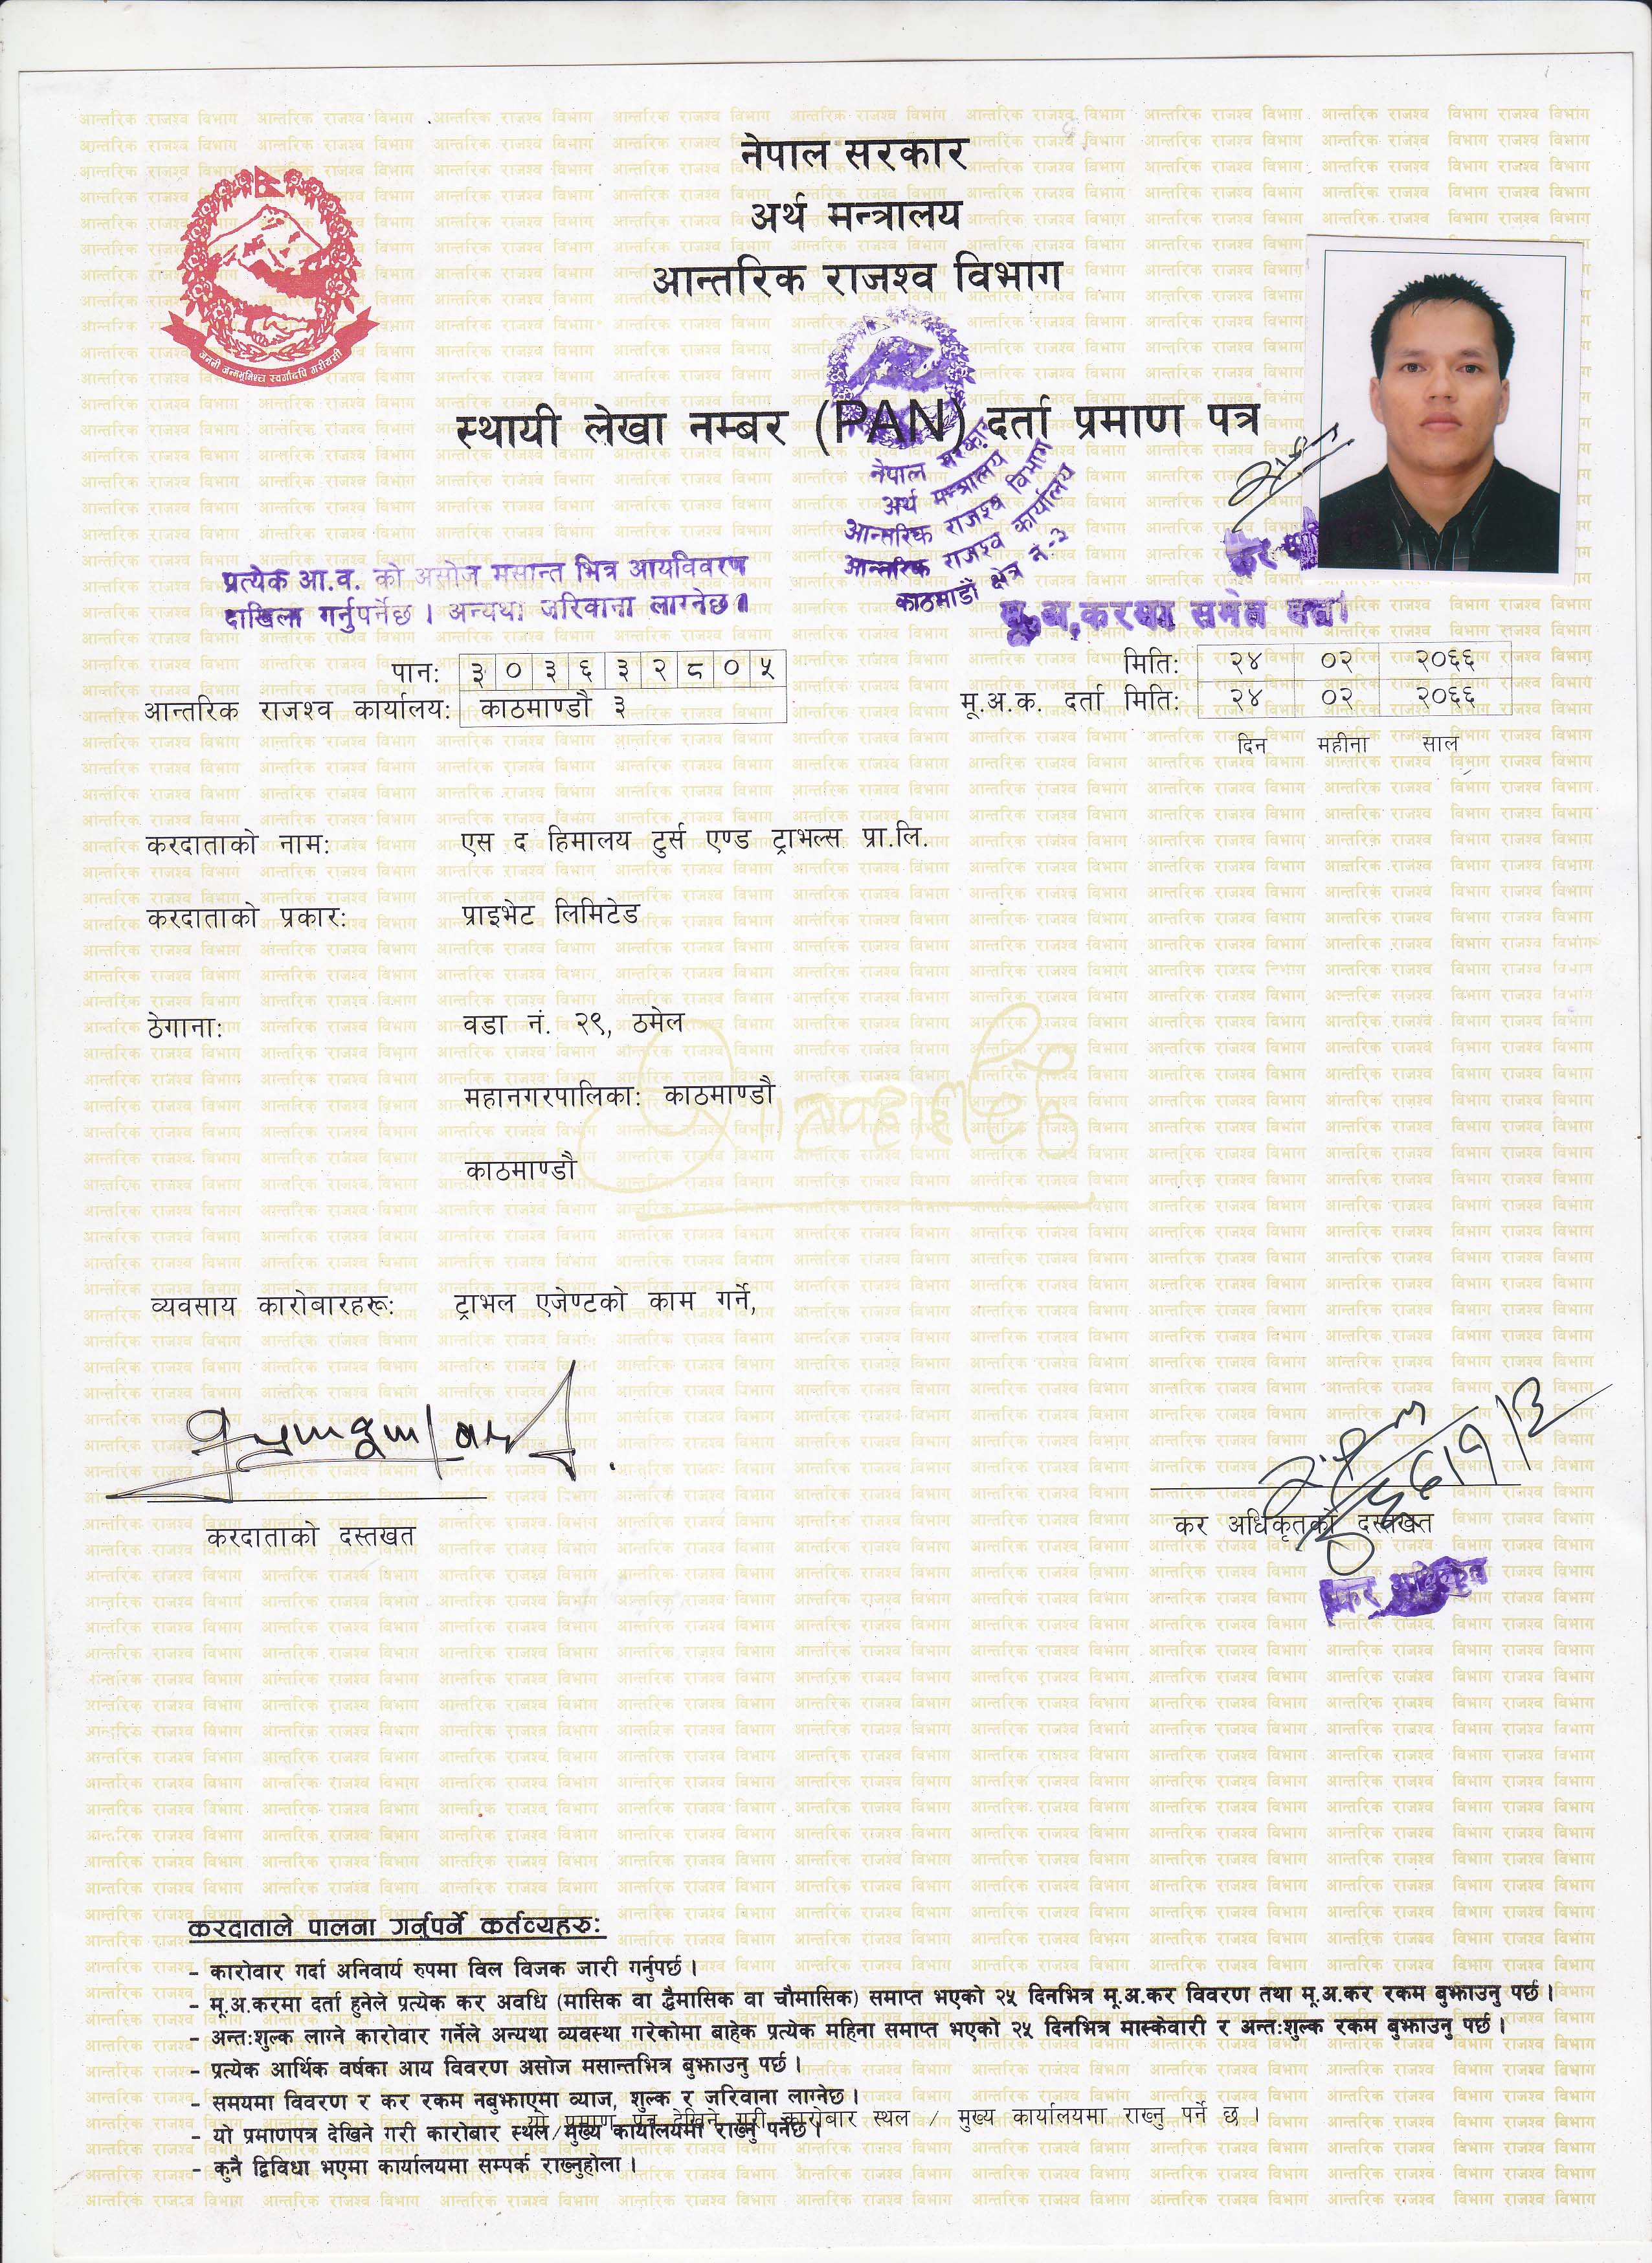 नेपाल सरकार
अर्थ मन्त्रालय
आन्तरिक राजश्व विभाग
जननी जन्मभूमिश्च स्वर्गादपि गरीयसी
स्थायी लेखा नम्बर (PAN) दर्ता प्रमाण पत्र
नेपाल सरकार
अर्थ मन्त्रालय
आन्तरिक राजश्व विभाग
आन्तरिक राजश्व कार्यालय
काठमाडौं क्षेत्र नं.-३
प्रत्येक आ.व. को असोज मसान्त भित्र आयविवरण
दाखिला गर्नुपर्नेछ । अन्यथा जरिवाना लाग्नेछ ।
मू.अ.करमा समेत दर्ता
पान: ३०३६३२८०५
मिति: २४ ०२ २०६६
आन्तरिक राजश्व कार्यालय: काठमाण्डौ ३
मू.अ.क. दर्ता मिति: २४ ०२ २०६६
दिन महीना साल
करदाताको नाम: एस द हिमालय टुर्स एण्ड ट्राभल्स प्रा.लि.
करदाताको प्रकार: प्राइभेट लिमिटेड
ठेगाना: वडा नं. २९, ठमेल
महानगरपालिका: काठमाण्डौ
काठमाण्डौ
व्यवसाय कारोबारहरू: ट्राभल एजेण्टको काम गर्ने,
करदाताको दस्तखत
कर अधिकृतको दस्तखत
कर अधिकृत
करदाताले पालना गर्नुपर्ने कर्तव्यहरु:
- कारोवार गर्दा अनिवार्य रुपमा विल विजक जारी गर्नुपर्छ ।
- मू.अ.करमा दर्ता हुनेले प्रत्येक कर अवधि (मासिक वा द्वैमासिक वा चौमासिक) समाप्त भएको २५ दिनभित्र मू.अ.कर विवरण तथा मू.अ.कर रकम बुझाउनु पर्छ ।
- अन्तःशुल्क लाग्ने कारोवार गर्नेले अन्यथा व्यवस्था गरेकोमा बाहेक प्रत्येक महिना समाप्त भएको २५ दिनभित्र मास्केवारी र अन्तःशुल्क रकम बुझाउनु पर्छ ।
- प्रत्येक आर्थिक वर्षका आय विवरण असोज मसान्तभित्र बुझाउनु पर्छ ।
- समयमा विवरण र कर रकम नबुझाएमा व्याज, शुल्क र जरिवाना लाग्नेछ ।
यो प्रमाण पत्र देखिने गरी कारोबार स्थल / मुख्य कार्यालयमा राख्नु पर्ने छ ।
- यो प्रमाणपत्र देखिने गरी कारोबार स्थल/मुख्य कार्यालयमा राख्नु पर्नेछ ।
- कुनै द्विविधा भएमा कार्यालयमा सम्पर्क राख्नुहोला ।